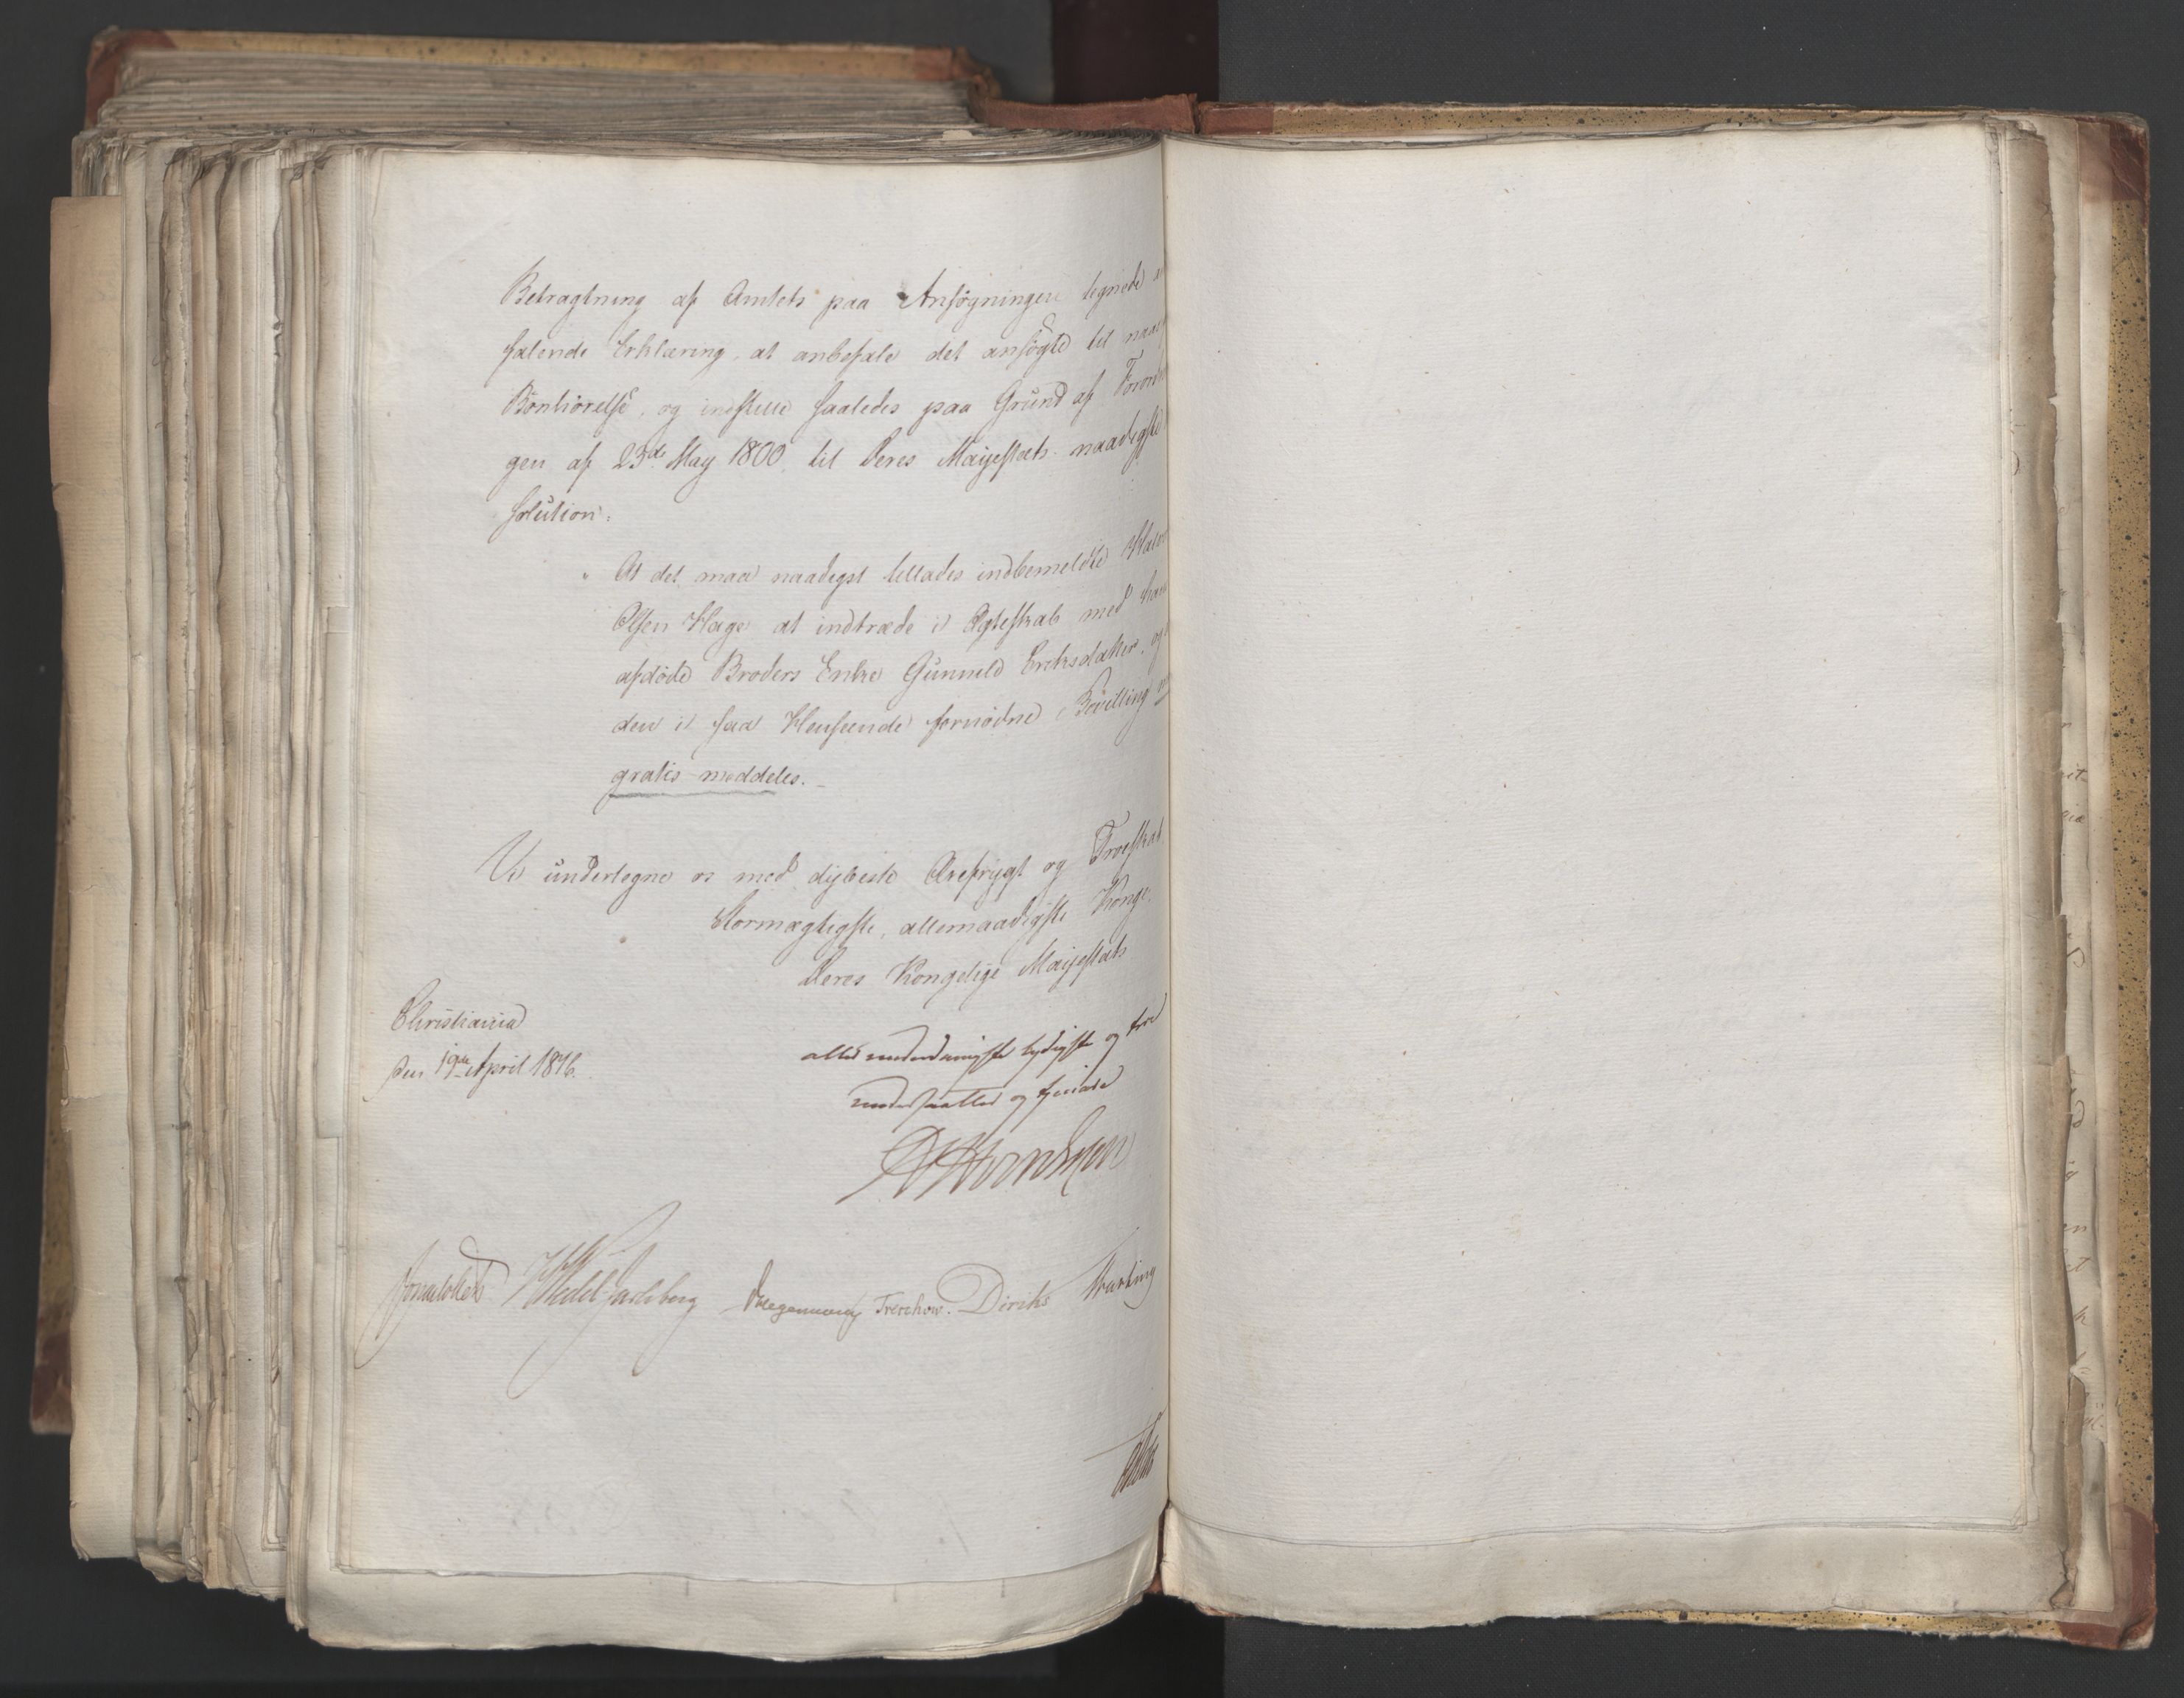 Betragtning af Amtets paa Ansøgningen tegnede
falende Erklæring, at anbefale det ansøgte til naad
Bønhørelse, og indstille saaledes paa Grund af Forord
gen af 23de May 1800 til Deres Majestæts naadigste
solution:
" At det maa naadigst tillades indbemeldte Halv
Olsen Hage at indtræde i Ægteskab med hans
afdøde Broders Enke Gunnild Eriksdatter, og
den i saa Henseende fornødne Bevilling
gratis meddeles. –
Vi undertegne os med dybeste Ærefrygt og Troeskab
Stormægtigste, allernaadigste Konge
Deres Kongelige Majestæts
Christiania
den 19de April 1816.
allerunderdanigste lydigste og troe
undersaatter og tjenere
Sommerfeldt
Wedel Jarlsberg
Treschow.
Diriks